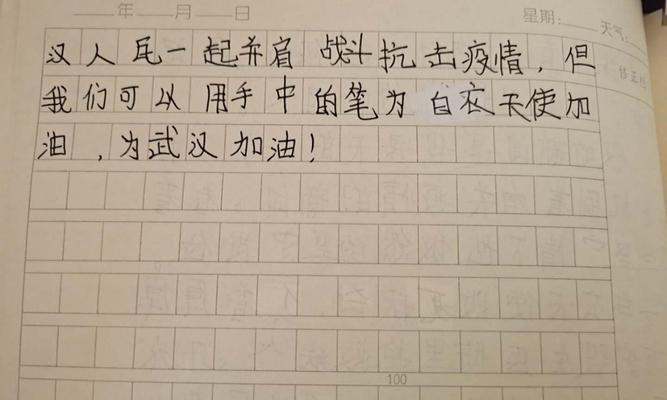 年 月 日 星期: 天气:
汉人民一起并肩战斗抗击疫情，但
我们可以用手中的笔为白衣天使加
油，为武汉加油！
100